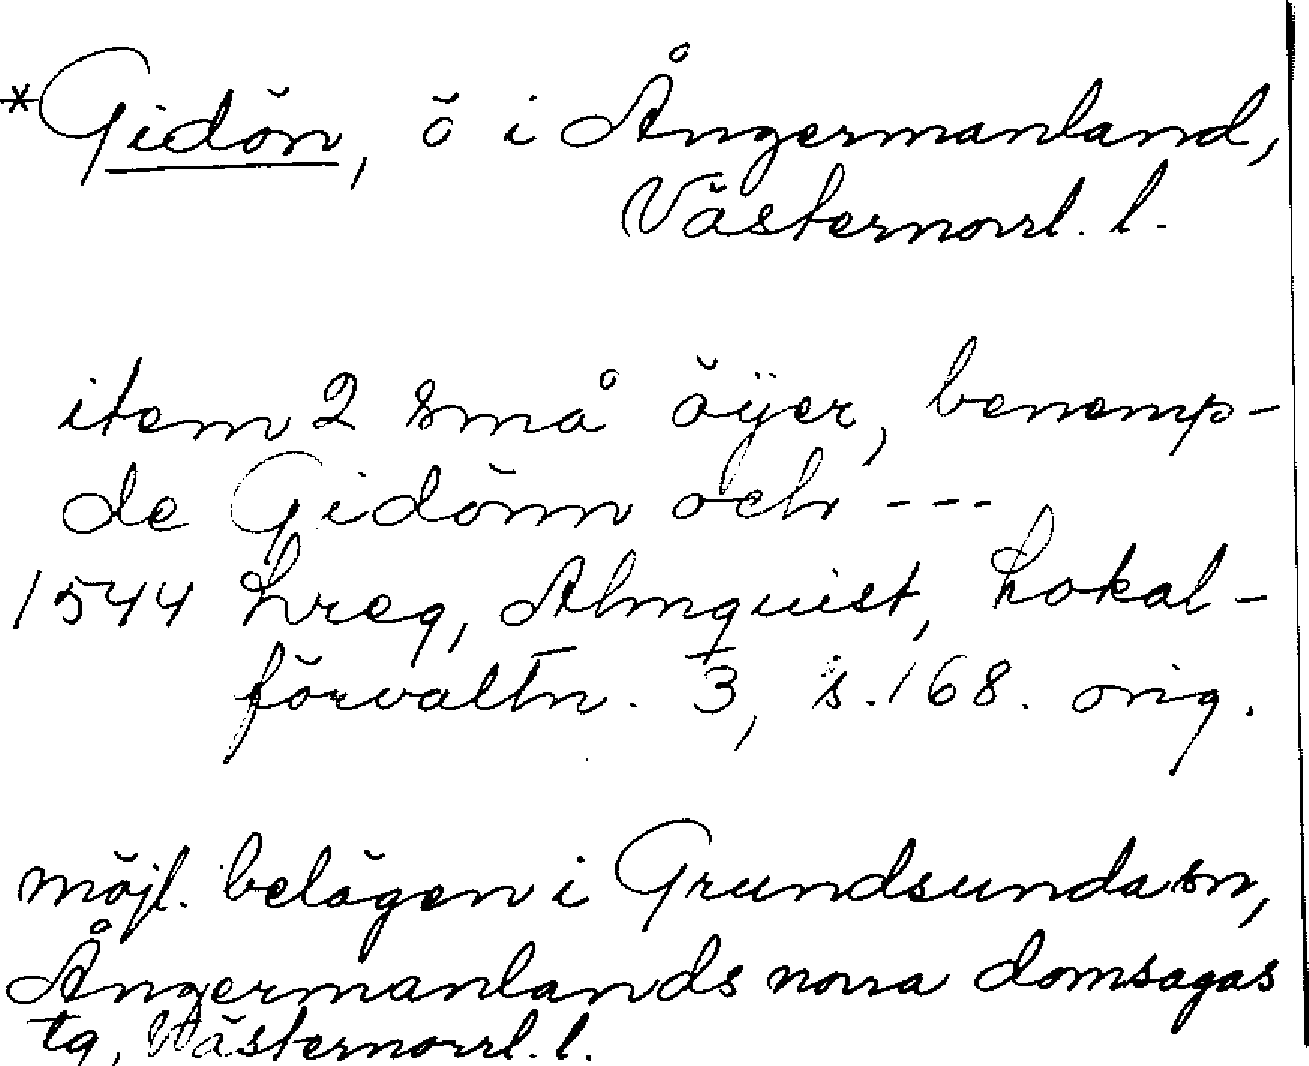 *Gidön, ö i Ångermanland,
Västernorrl. l.
item 2 små öÿer, benemp-
de Gidönn och ---
1544 Lreg, Almquist, Lokal-
förvaltn. 3, s. 168. orig.
möjl. belägen i Grundsunda sn,
Ångermanlands norra domsagas
tg, Västernorrl. l.